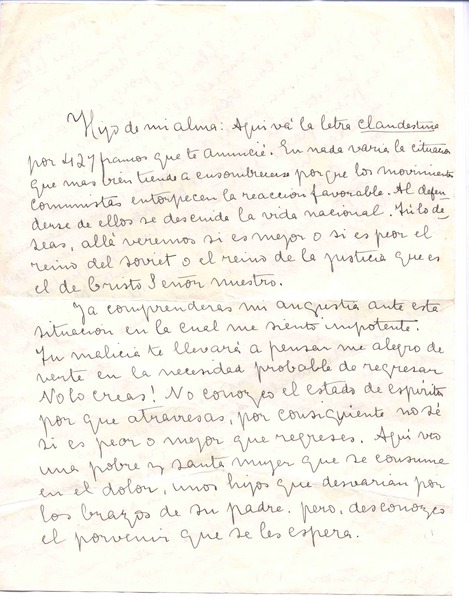 Hijo de mi alma: Aqui vá la letra clandestina
por 427 francos que te anuncié. En nada varia la situacion
que mas bien tiende a ensombrecerse porque los movimientos
comunistas entorpecen la reaccion favorable. Al defen-
derse de ellos se descuida la vida nacional. Tú lo de-
seas, allá veremos si es mejor o si es peor el
reino del soviet o el reino de la justicia que es
el de Cristo Señor nuestro.
Ya comprenderas mi angustia ante esta
situacion en la cual me siento impotente.
Tu malicia te llevará a pensar me alegro de
verte en la necesidad probable de regresar
No lo creas! No conozco el estado de espiritu
por que atraviesas, por consiguiente no sé
si es peor o mejor que regreses. Aqui veo
una pobre y santa mujer que se consume
en el dolor, unos hijos que desvarian por
los brazos de su padre, pero, desconozco
el porvenir que se les espera.